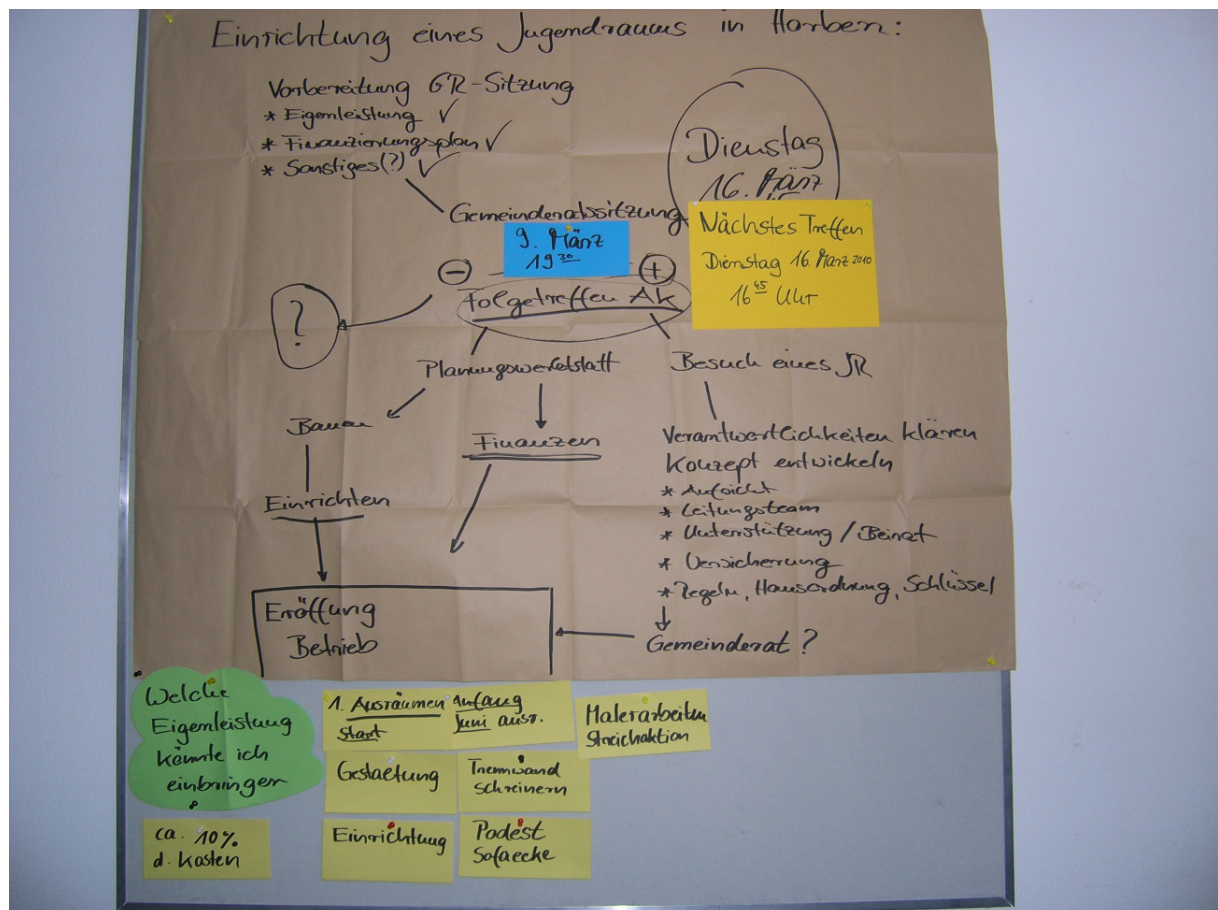 Einrichtung eines Jugendraums in Horben:
Vorbereitung GR-Sitzung
* Eigenleistung ✓
* Finanzierungsplan ✓
* Sonstiges(?) ✓
Dienstag
16. März
Gemeinderatssitzung
9. März
19 30
Nächstes Treffen
Dienstag 16. März 2010
16 45 Uhr
− +
Folgetreffen AK
?
Planungswerkstatt
Besuch eines JR
Bauen
Finanzen
Verantwortlichkeiten klären
Konzept entwickeln
* Aufsicht
* Leitungsteam
* Unterstützung / Beirat
* Versicherung
* Regeln, Hausordnung, Schlüssel
Einrichten
Eröffung
Betrieb
Gemeinderat ?
Welche
Eigenleistung
könnte ich
einbringen
ca. 10%
d. Kosten
1. Ausräumen Anfang
Start Juni
Malerarbeiten
Streichaktion
Gestaltung
Trennwand
schreinern
Einrichtung
Podest
Sofaecke